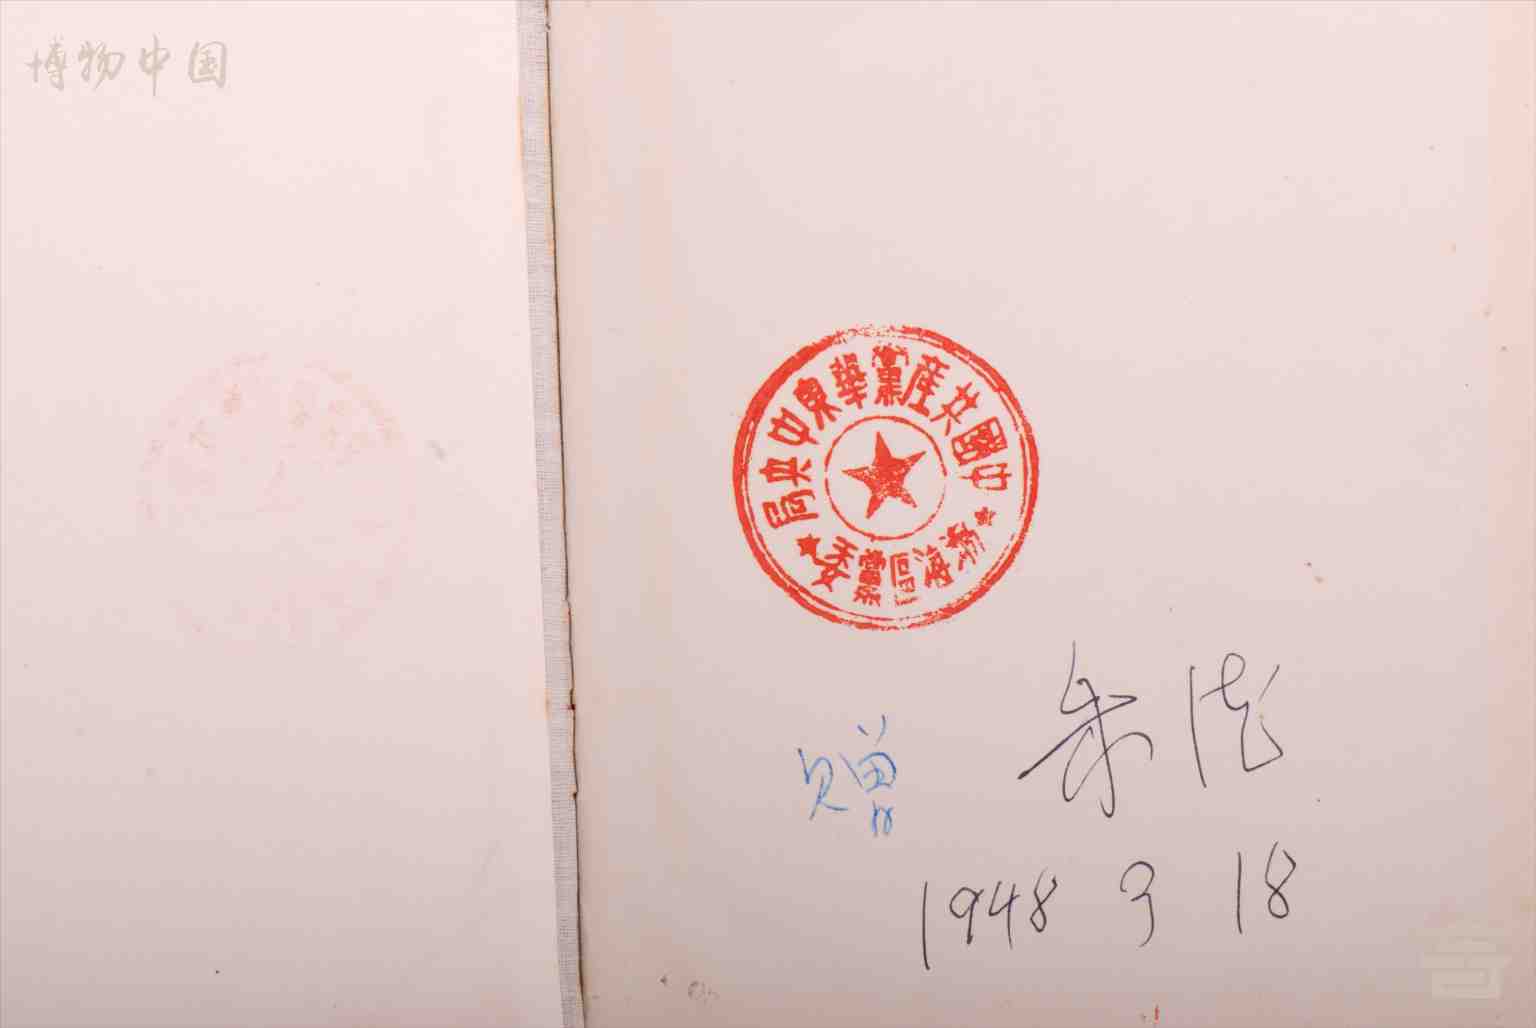 博物中国
中國共產黨華東中央局
渤海區黨委
赠
1948 3 18